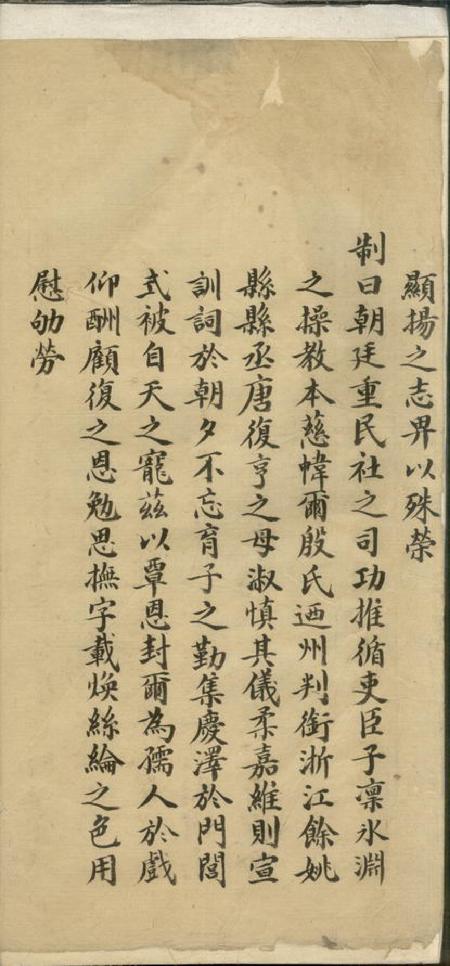 顯揚之志畀以殊榮
制曰朝廷重民社之司功推循吏臣子凛氷淵
之操教本慈幃爾殷氏迺州判銜浙江餘姚
縣縣丞唐復亨之母淑慎其儀柔嘉維則宣
訓詞於朝夕不忘育子之勤集慶澤於門閭
式被自天之寵兹以覃恩封爾為孺人於戲
仰酬顧復之恩勉思撫字載煥絲綸之色用
慰劬勞